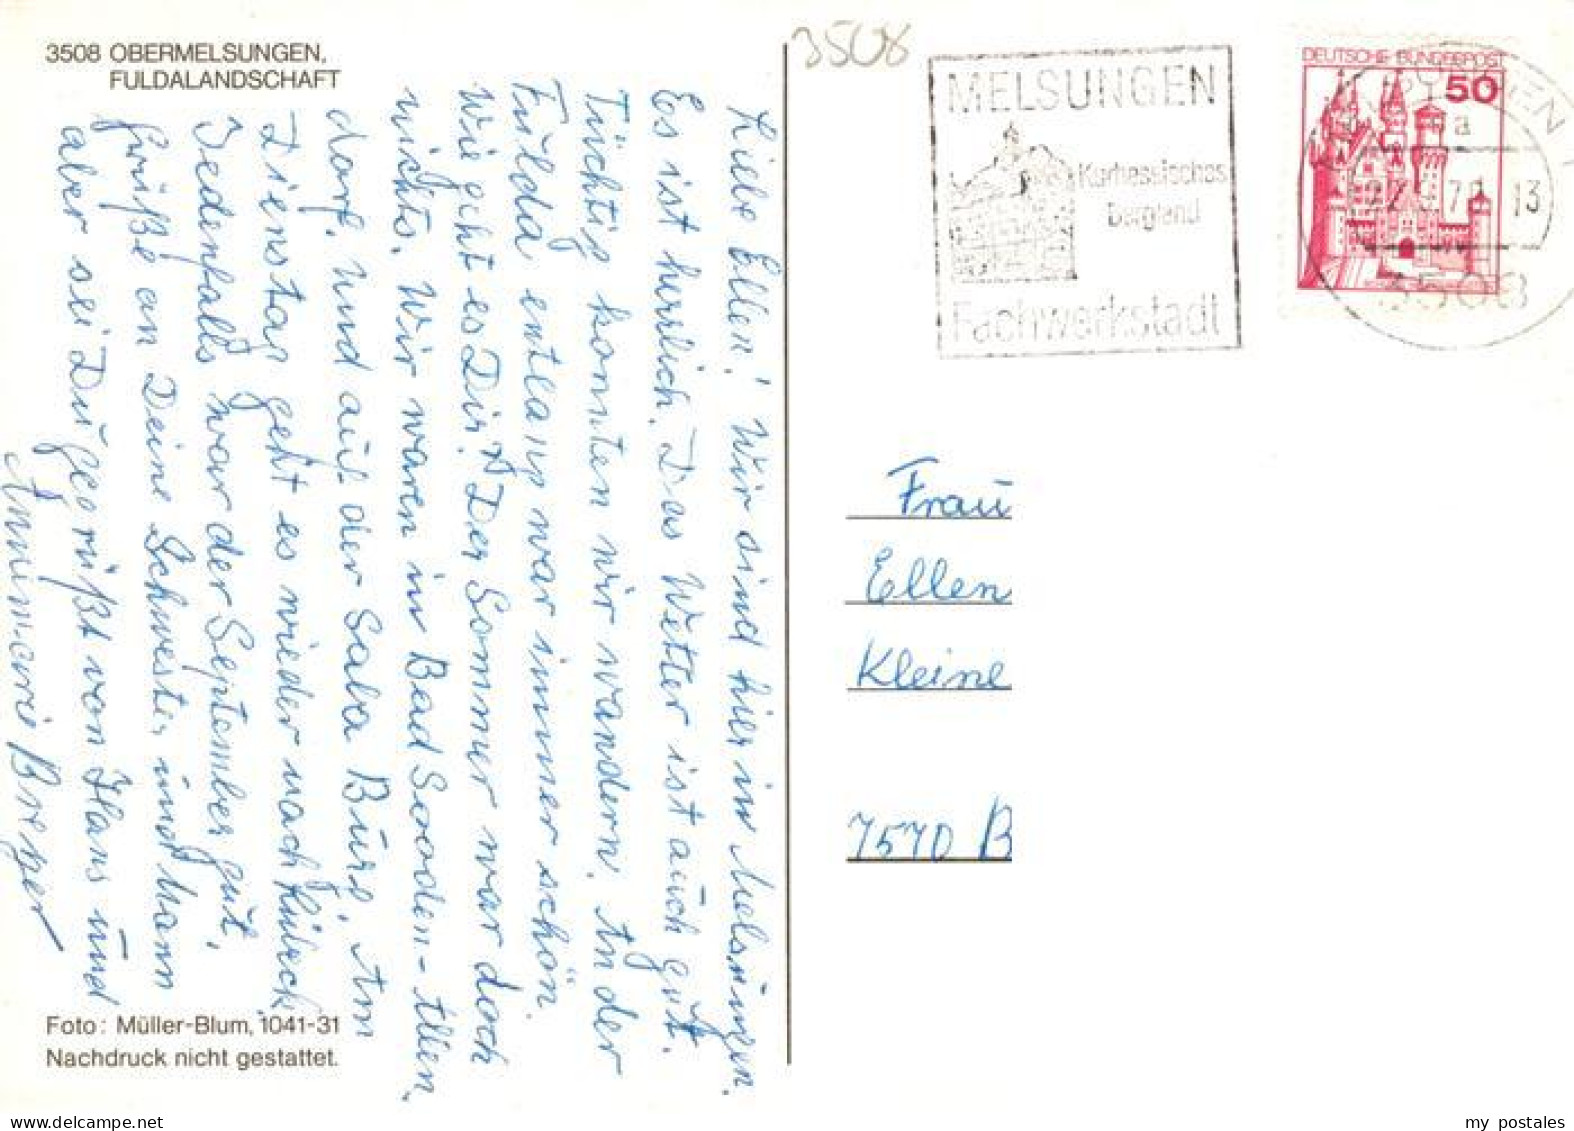 3508 OBERMELSUNGEN,
FULDALANDSCHAFT
Liebe Ellen! Wir sind hier in Melsungen.
Es ist herrlich. Das Wetter ist auch gut.
Tüchtig konnten wir wandern. An der
Fulda entlang war immer schön.
Wie geht es Dir? Der Sommer war doch
nichts. Wir waren in Bad Sooden-Allen
dorf, und auf der Saba Burg. Am
Dienstag geht es wieder nach Lübeck.
Jedenfalls war der September gut,
Grüße an Deine Schwester und Mann
aber sei Du gegrüßt von Hans und
Annemarie
Foto: Müller-Blum, 1041-31
Nachdruck nicht gestattet.
3508
MELSUNGEN
Kurhessisches
Bergland
Fachwerkstadt
DEUTSCHE BUNDESPOST
50
a
13
3508
Frau
Ellen
Kleine
7570 B
my postales